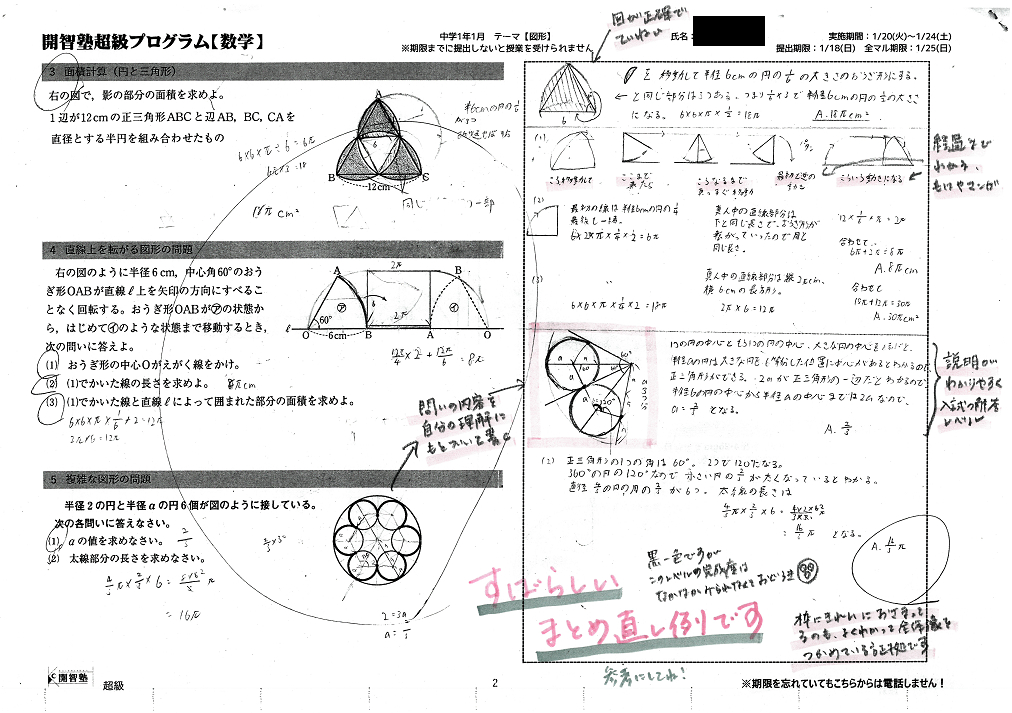 開智塾超級プログラム【数学】
中学1年1月　テーマ【図形】
※期限までに提出しないと授業を受けられません
氏名：
実施期間：1/20(火)～1/24(土)
提出期限：1/18(日)　全マル期限：1/25(日)
3　面積計算（円と三角形）
右の図で，影の部分の面積を求めよ。
1辺が12cmの正三角形ABCと辺AB，BC，CAを
直径とする半円を組み合わせたもの
A
B
C
6
12cm
6×6×π÷6=6π
6π×3=18
18π cm²
4　直線上を転がる図形の問題
右の図のように半径6cm，中心角60°のおう
ぎ形OABが直線ℓ上を矢印の方向にすべるこ
となく回転する。おうぎ形OABが㋐の状態か
ら，はじめて㋑のような状態まで移動するとき，
次の問いに答えよ。
(1)　おうぎ形の中心Oがえがく線をかけ。
(2)　(1)でかいた線の長さを求めよ。　8πcm
(3)　(1)でかいた線と直線ℓによって囲まれた部分の面積を求めよ。
A
2π
B
㋐
6
㋑
60°
2π
ℓ
O
6cm
B
A
O
12π/4×2+12π/6=8π
6×6×π×1/6×2=12π
2π×6=12π
5　複雑な図形の問題
半径2の円と半径aの円6個が図のように接している。
次の各問いに答えなさい。
(1)　aの値を求めなさい。　2/3
(2)　太線部分の長さを求めなさい。
=16π
2=3a
問いの内容を
自分の理解に
もとづいて書く
図が正確で
ていねい
を移動して半径6cmの円の1/6の大きさのおうぎ形にする。
と同じ部分は3つある。つまり1/6×3で半径6cmの円の1/2の大きさ
になる。6×6×π×1/2=18π
A.18πcm²
(1)
ここまで
来たら
こうなるまで
まっすぐ移動
最初と逆の
こういう動きになる
経過まで
わかる
(2)
最初の線は半径6cmの円の1/4
最後も一緒。
真ん中の直線部分は
下と同じ長さで、おうぎ形が
転がっていったので周と
同じ長さ。
12×1/6×π=2π
合わせて、
6π+2π=8π
A.8πcm
(3)
6×6×π×1/4×2=18π
真ん中の直線部分は縦2πcm、
横6cmの長方形。
2π×6=12π
合わせて
18π+12π=30π
A.30πcm²
正三角形ができる。2aが正三角形の一辺だとわかるので、
半径6の円の中心から半径aの中心までは2aなので、
a=2/3 となる。
A. 2/3
説明が
わかりやすく
入試の解答
レベル
(2)　正三角形の1つの角は60°。2つで120°になる。
360°の円の120°なので小さい円の2/3が太くなっているとわかる。
直径4/3の円の周の2/3が6つ。太線の長さは
4/3π×2/3×6=
=16/3π となる。
A. 16/3π
黒一色ですが
このレベルの完成度は
すばらしい
まとめ直し例です
参考にしてね！
枠にきれいにおさまって
るのも、よくわかって全体像を
つかめている証拠です
開智塾
超級
2
※期限を忘れていてもこちらからは電話しません！